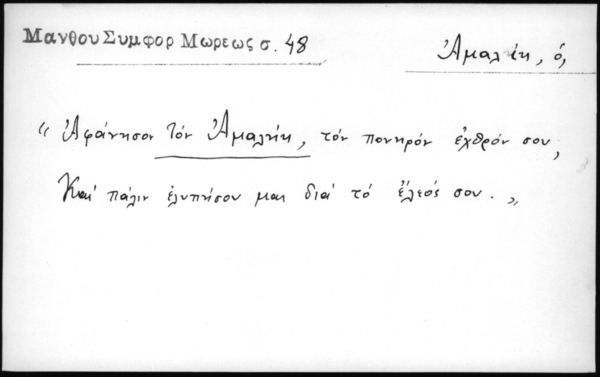 Μανθου Συμφορ Μωρεως σ. 48
Ἀμαλήκ, ὁ,
“ Ἀφάνησον τὸν Ἀμαλήκ, τὸν πονηρὸν ἐχθρόν σου,
Καὶ πάλιν ἐλυπήσου μας διὰ τὸ ἔλεός σου. „